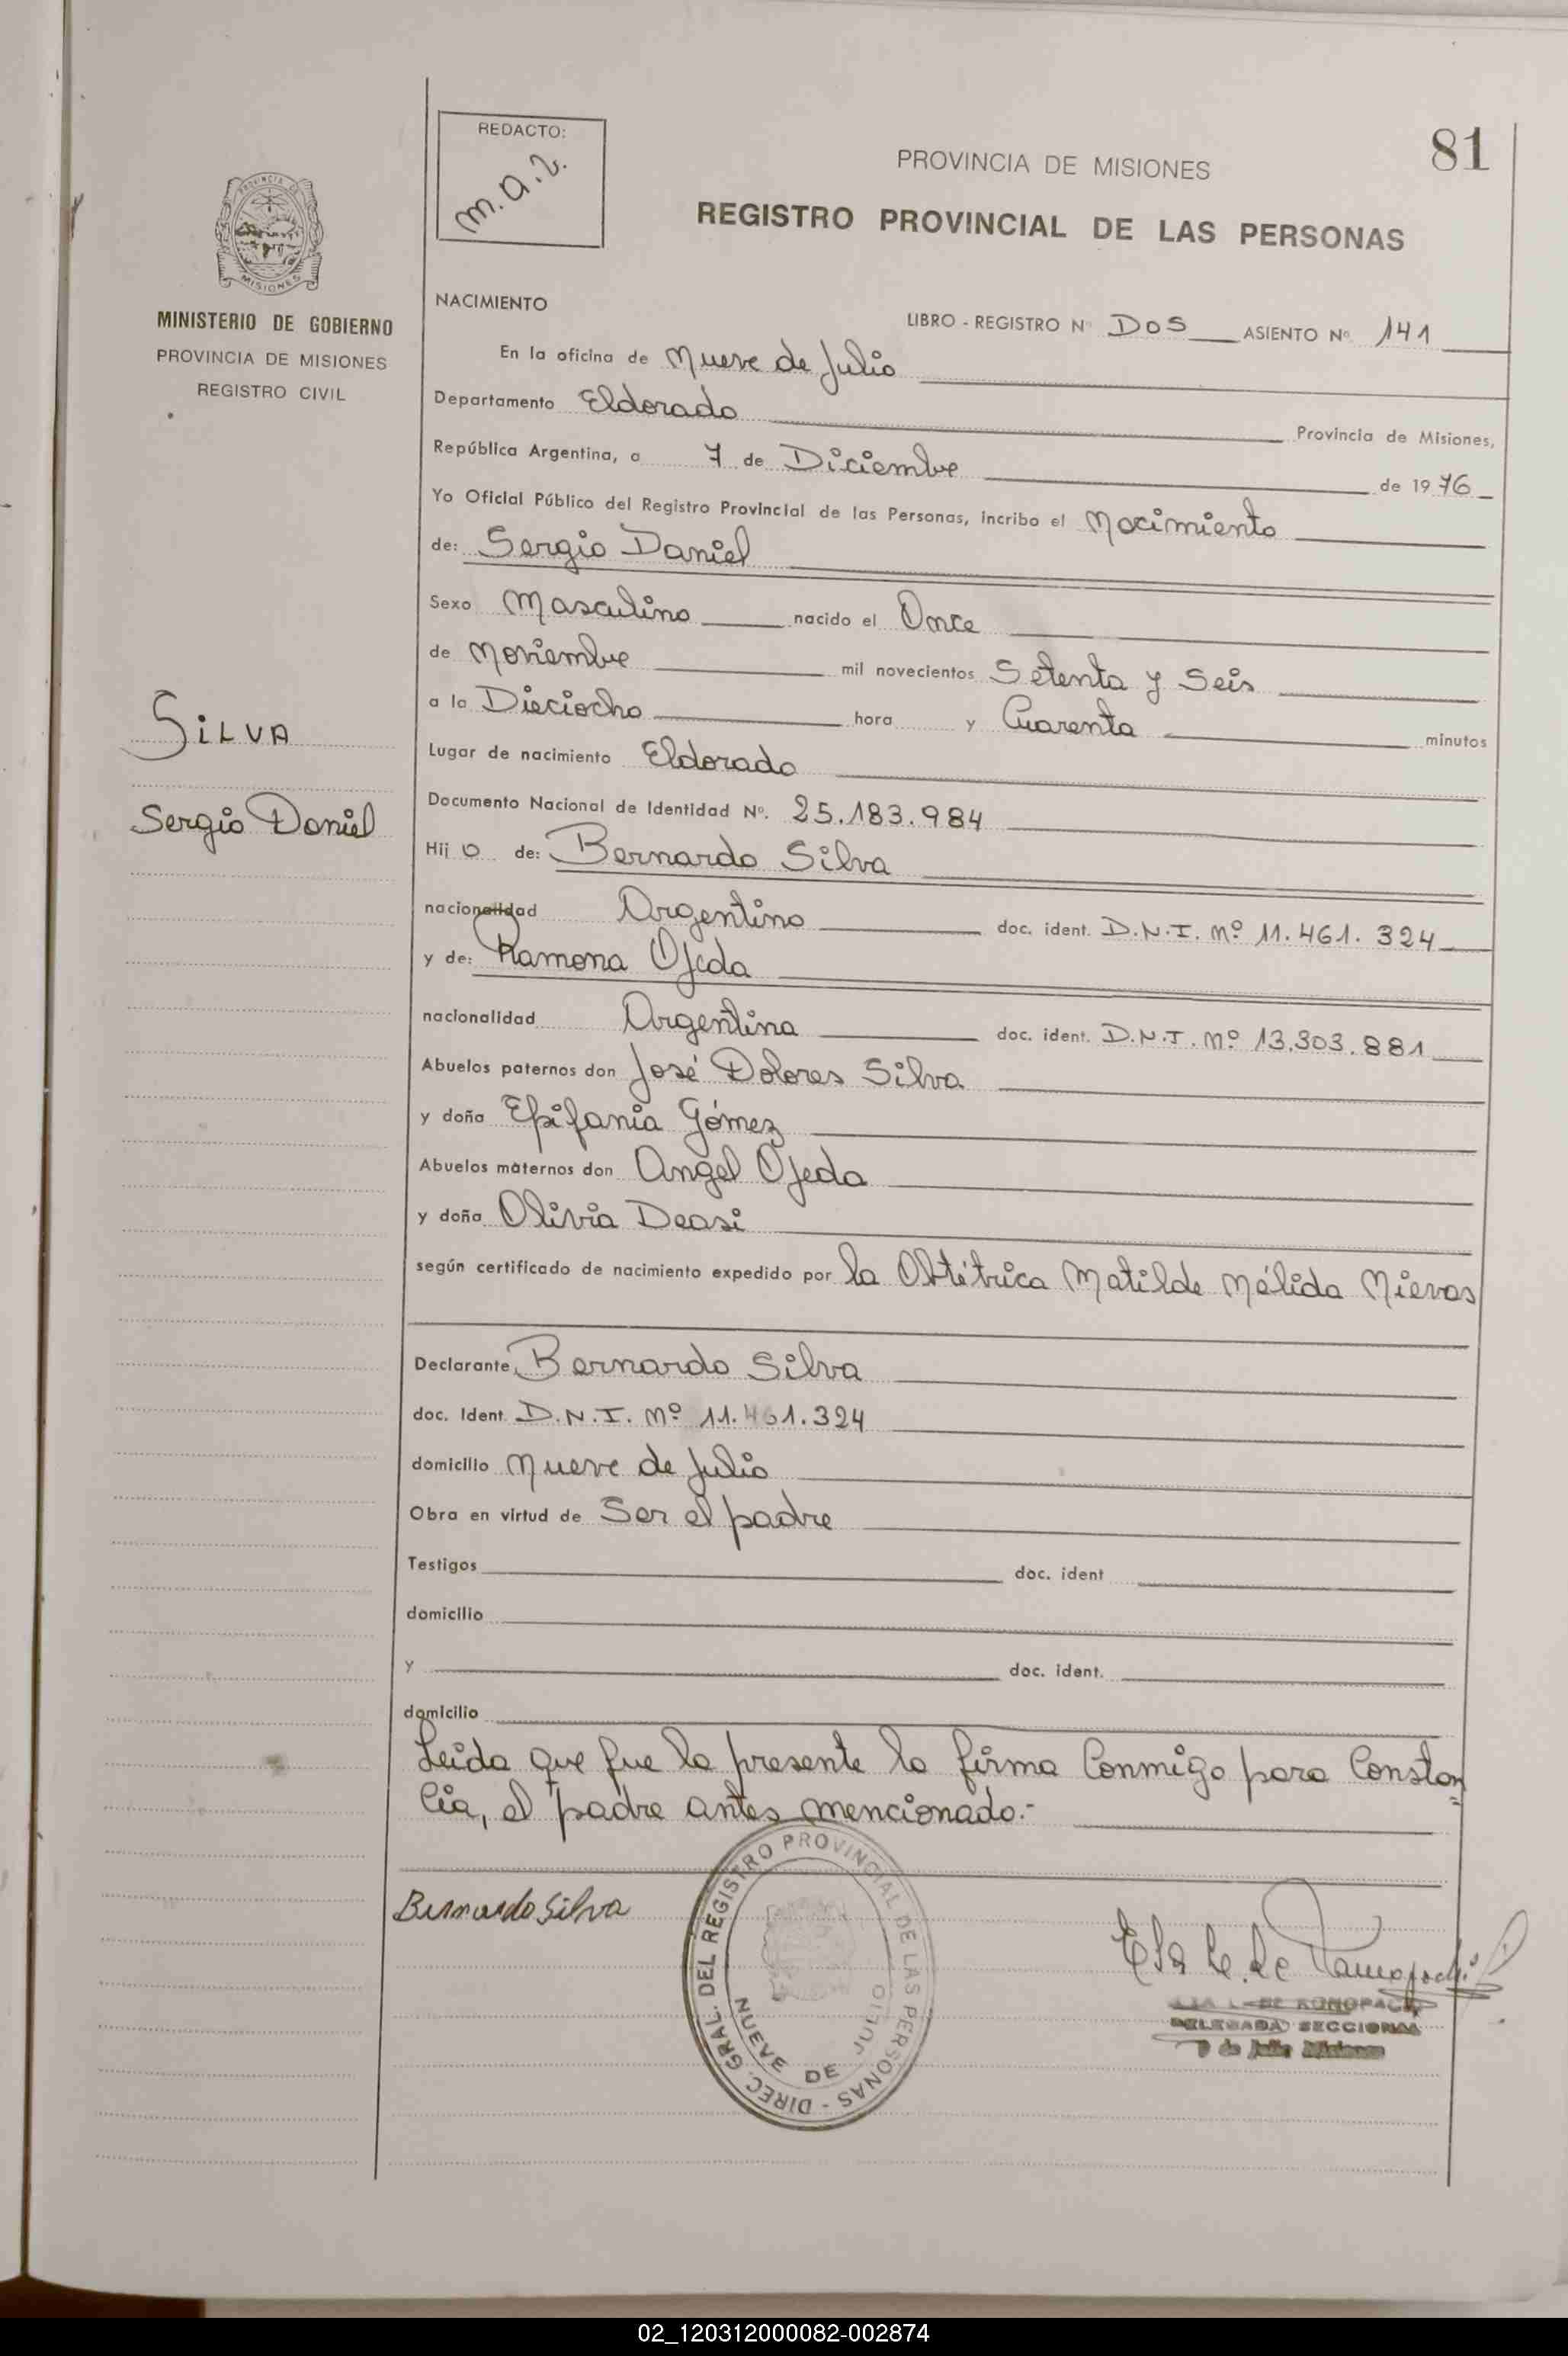 81
REDACTO:
m.a.z.
PROVINCIA DE MISIONES
REGISTRO PROVINCIAL DE LAS PERSONAS
PROVINCIA DE
MISIONES
MINISTERIO DE GOBIERNO
PROVINCIA DE MISIONES
REGISTRO CIVIL
SILVA
Sergio Daniel
NACIMIENTO
LIBRO - REGISTRO Nº DOS ASIENTO Nº 141
En la oficina de Nueve de Julio
Departamento Eldorado Provincia de Misiones,
República Argentina, a 7 de Diciembre de 1976
Yo Oficial Público del Registro Provincial de las Personas, incribo el Nacimiento
de: Sergio Daniel
Sexo Masculino nacido el Once
de Noviembre mil novecientos Setenta y Seis
a la Dieciocho hora y Cuarenta minutos
Lugar de nacimiento Eldorado
Documento Nacional de Identidad Nº. 25.183.984
Hij o de: Bernardo Silva
nacionalidad Argentino doc. ident. D.N.I. Nº 11.461.324
y de: Ramona Ojeda
nacionalidad Argentina doc. ident. D.N.I. Nº 13.303.881
Abuelos paternos don José Dolores Silva
y doña Epifania Gómez
Abuelos maternos don Angel Ojeda
y doña Olivia Deasi
según certificado de nacimiento expedido por la Obtétrica Matilde Nélida Nievas
Declarante Bernardo Silva
doc. Ident. D.N.I. Nº 11.461.324
domicilio Nueve de Julio
Obra en virtud de Ser el padre
Testigos doc. ident
domicilio
y doc. ident.
domicilio
Leida que fue la presente la firma Conmigo para Constan
cia, el padre antes mencionado.-
Bernardo Silva
DIREC. GRAL. DEL REGISTRO PROVINCIAL DE LAS PERSONAS -
NUEVE DE JULIO
DELEGADA SECCIONAL
9 de Julio Misiones
02_120312000082-002874